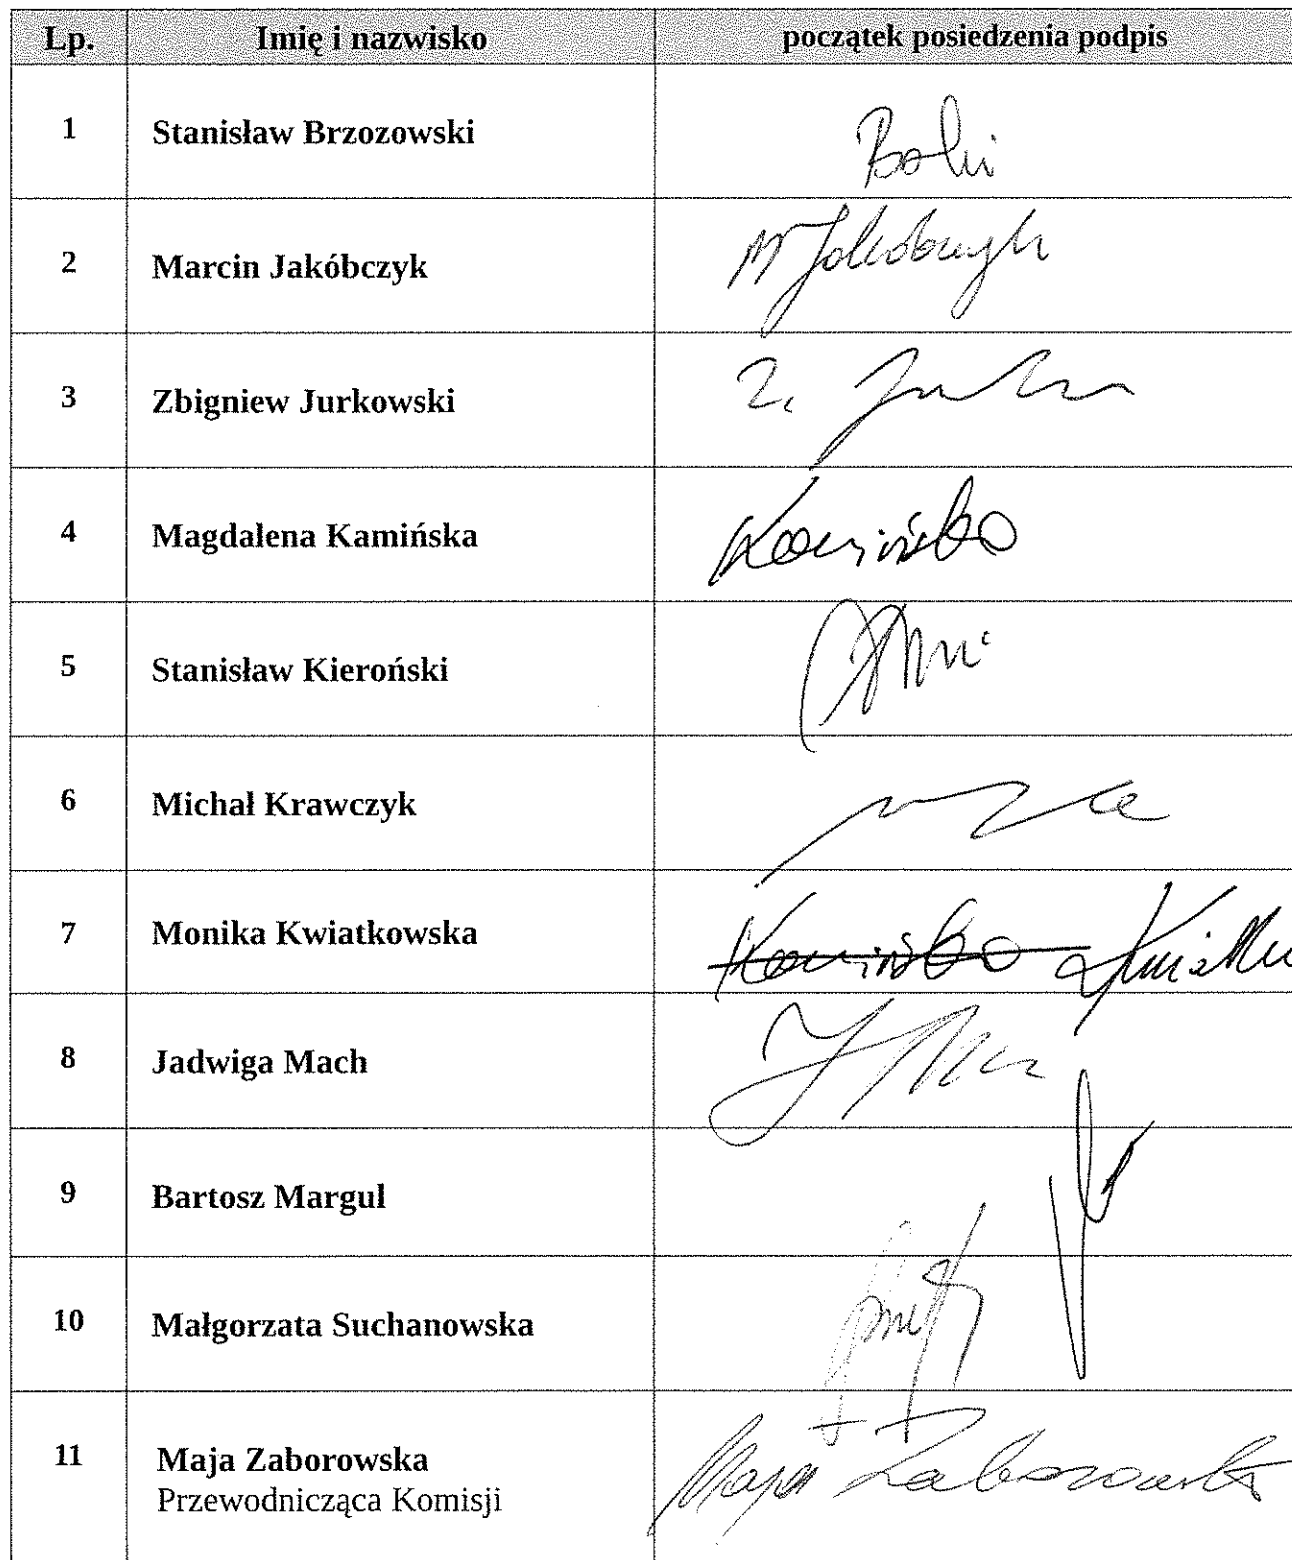 Lp. Imię i nazwisko początek posiedzenia podpis
1 Stanisław Brzozowski
2 Marcin Jakóbczyk M Jakóbczyk
3 Zbigniew Jurkowski Z.
4 Magdalena Kamińska Kamińska
5 Stanisław Kieroński
6 Michał Krawczyk
7 Monika Kwiatkowska Kamińska
8 Jadwiga Mach
9 Bartosz Margul
10 Małgorzata Suchanowska
11 Maja Zaborowska Maja Zaborowska
Przewodnicząca Komisji